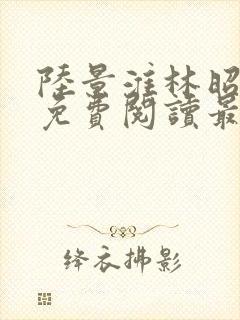 陸景淮林昭
免費閱讀最
絳衣拂影